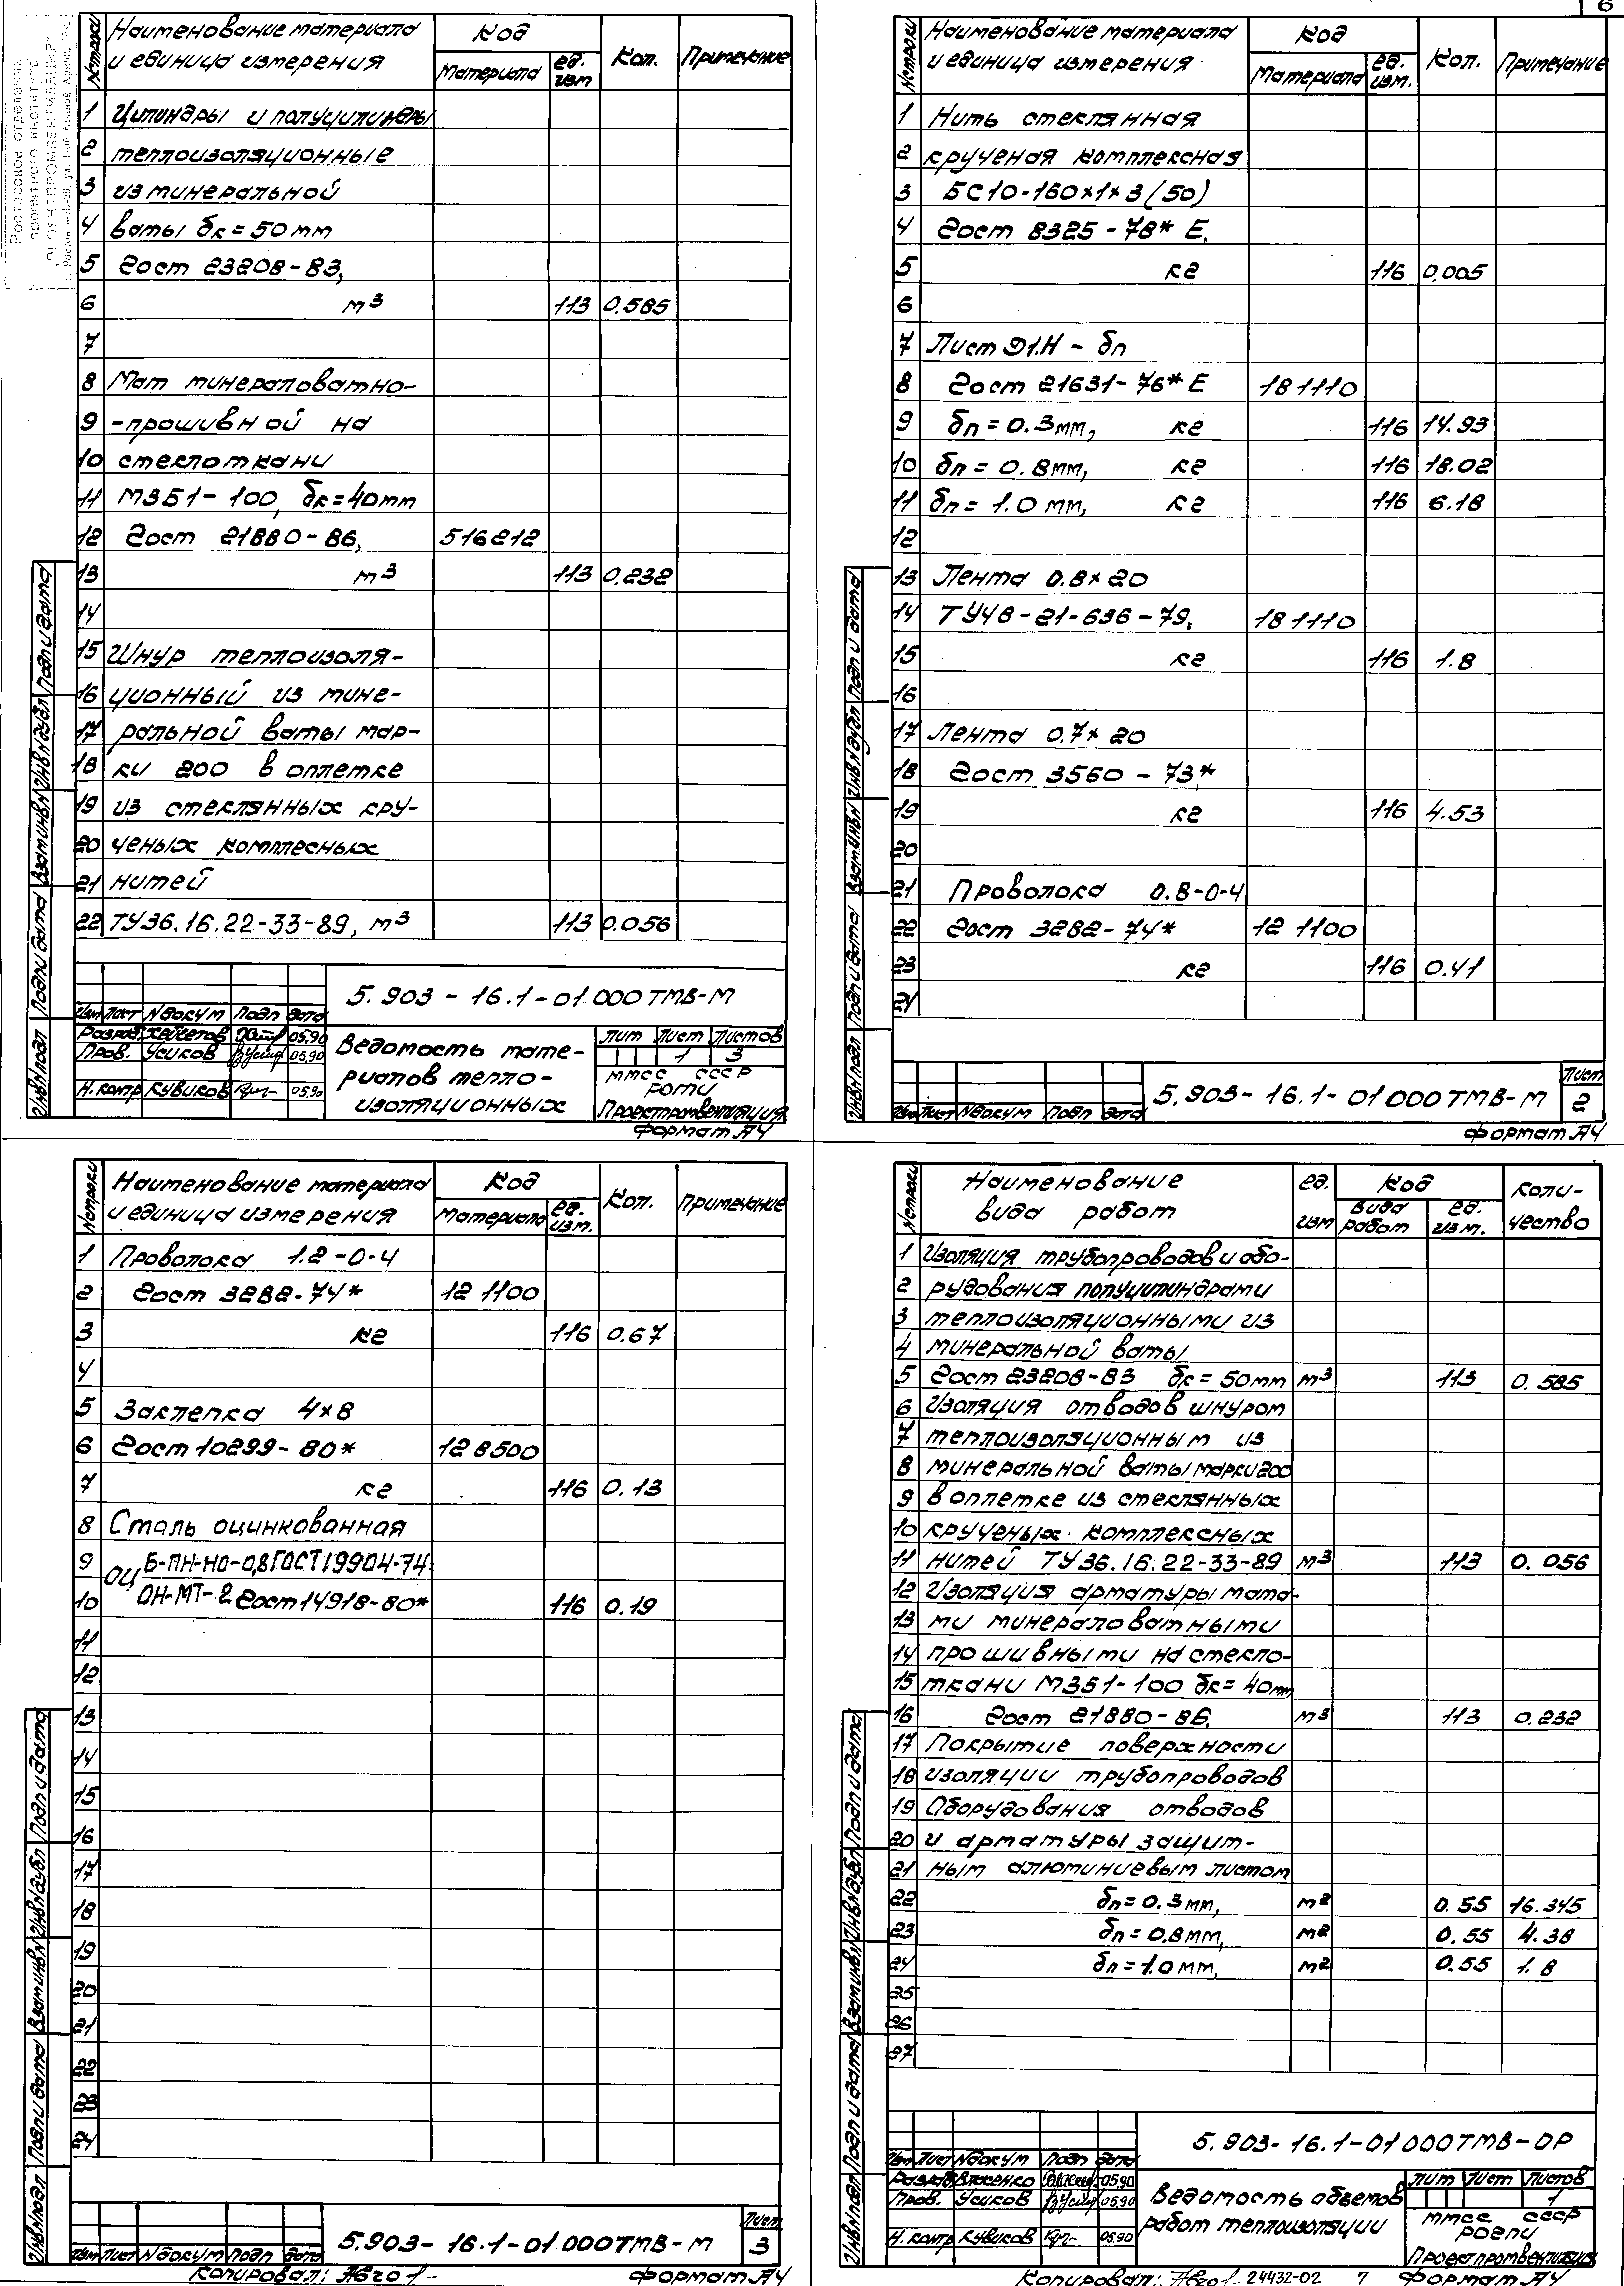 6
Ростовское отделение
проектного института
"ПРОЕКТПРОМВЕНТИЛЯЦИЯ"
№ строки Наименование материала и единица измерения Код Кол. Примечание
материала ед. изм
1 Цилиндры и полуцилиндры
2 теплоизоляционные
3 из минеральной
4 ваты δк=50мм
5 Гост 23208-83,
6 м³ 113 0.585
7
8 Мат минераловатно-
9 -прошивной на
10 стеклоткани
11 М3Б1-100, δк=40мм
12 Гост 21880-86, 516212
13 м³ 113 0.232
14
15 Шнур теплоизоля-
16 ционный из мине-
17 ральной ваты мар-
18 ки 200 в оплетке
19 из стеклянных кру-
20 ченых комплесных
21 нитей
22 ТУ36.16.22-33-89, м³ 113 0.056
5.903-16.1-01.000ТМВ-М
Изм Лист №докум Подп Дата
Разраб. 05.90
Пров. Усиков 05.90
Н.контр Кувиков 05.90
Ведомость мате-
риалов тепло-
изоляционных
Лит Лист Листов
1 3
ммсс ссср
Проектпромвентиляция
Формат А4
Инв№подл Подп и дата Взам инв№ Инв№дубл Подп и дата
№ строки Наименование материала и единица измерения Код Кол. Примечание
материала ед. изм.
1 Нить стеклянная
2 крученая комплексная
3 БС10-160×1×3(50)
4 Гост 8325-78* Е,
5 кг 116 0,005
6
7 Лист Д1.Н - δп
8 Гост 21631-76* Е 18 1110
9 δп=0.3мм, кг 116 14.93
10 δп=0.8мм, кг 116 18.02
11 δп=1.0мм, кг 116 6.18
12
13 Лента 0.8×20
14 ТУ48-21-636-79, 18 1110
15 кг 116 1.8
16
17 Лента 0.7×20
18 Гост 3560-73,*
19 кг 116 4.53
20
21 Проволока 0.8-0-4
22 Гост 3282-74* 12 1100
23 кг 116 0.41
24
5.903-16.1-01000ТМВ-М
Лист
2
Изм Лист №докум Подп Дата
Формат А4
Инв№подл Подп и дата Взам.инв№ Инв№дубл Подп и дата
№ строки Наименование материала и единица измерения Код Кол. Примечание
материала ед. изм.
1 Проволока 1.2-0-4
2 Гост 3282-74* 12 1100
3 кг 116 0.67
4
5 Заклепка 4×8
6 Гост 10299-80* 12 8500
7 кг 116 0.13
8 Сталь оцинкованная
9 ОЦ Б-ПН-НО-0,8 ГОСТ19904-74
10 ОН-МТ-2 Гост14918-80* 116 0.19
11
12
13
14
15
16
17
18
19
20
21
22
23
24
5.903-16.1-01.000ТМВ-М
Лист
3
Изм Лист №докум Подп Дата
Копировал:
Формат А4
Инв№подл Подп и дата Взам инв№ Инв№дубл Подп и дата
№ строки Наименование вида работ ед. изм Код Коли-чество
вида работ ед. изм.
1 Изоляция трубопроводов и обо-
2 рудования полуцилиндрами
3 теплоизоляционными из
4 минеральной ваты
5 Гост 23208-83 δк=50мм м³ 113 0.585
6 Изоляция отводов шнуром
7 теплоизоляционным из
8 минеральной ваты марки 200
9 в оплетке из стеклянных
10 крученых комплексных
11 нитей ТУ36.16.22-33-89 м³ 113 0.056
12 Изоляция арматуры мата-
13 ми минераловатными
14 прошивными на стекло-
15 ткани М3Б1-100 δк=40мм
16 Гост 21880-86, м³ 113 0.232
17 Покрытие поверхности
18 изоляции трубопроводов
19 Оборудования отводов
20 и арматуры защит-
21 ным алюминиевым листом
22 δп=0.3мм, м² 0.55 16.345
23 δп=0.8мм, м² 0.55 4.38
24 δп=1.0мм, м² 0.55 1.8
25
26
27
5.903-16.1-01000ТМВ-ОР
Изм Лист №докум Подп Дата
Разраб Власенко 05.90
Пров. Усиков 05.90
Н.контр Кувиков 05.90
Ведомость объемов
работ теплоизоляции
Лит Лист Листов
1
ммсс ссср
Проектпромвентиляция
Копировал: 24432-02 7 Формат А4
Инв№подл Подп и дата Взам инв№ Инв№дубл Подп и дата